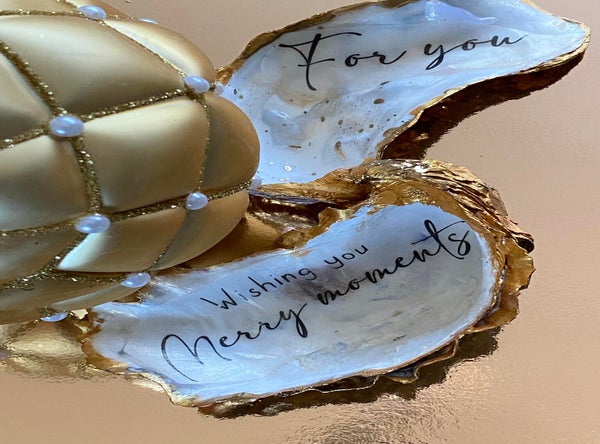 For you
Wishing you
Merry moments